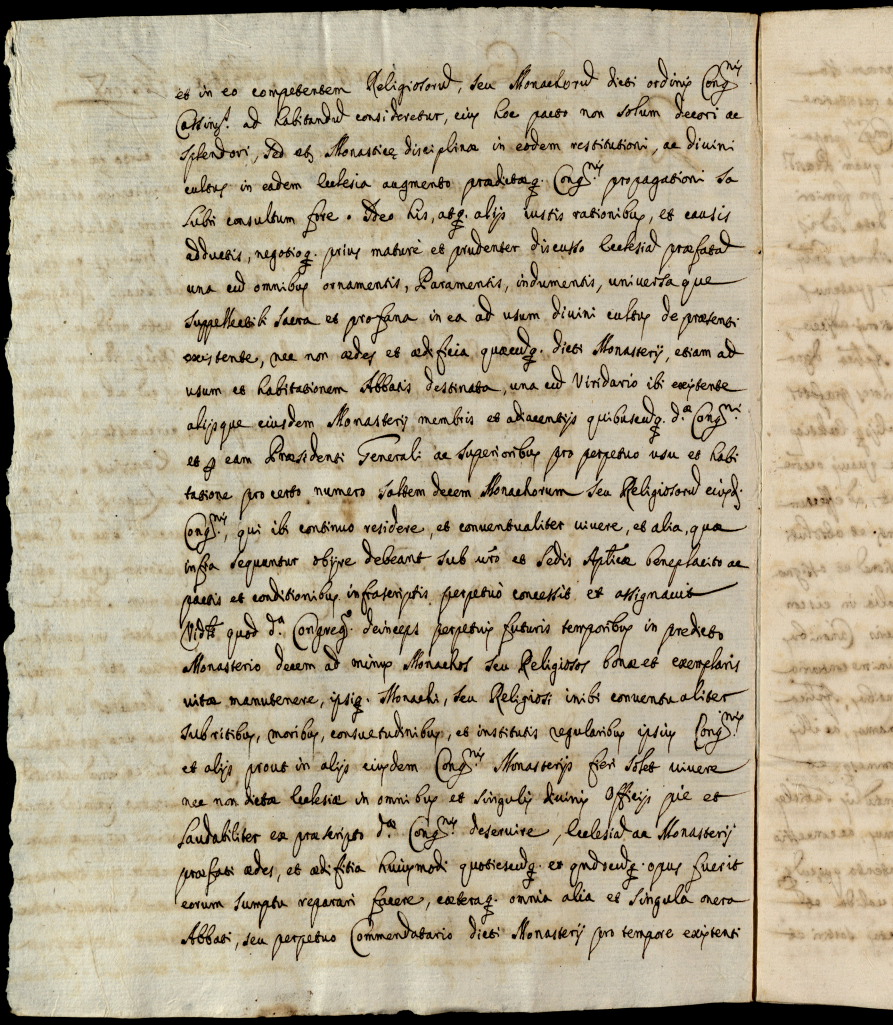 et in eo competentem Religiosorũ, seu Monachorũ dicti ordinis Cong.nis
Cassins.s ad habitandũ consideretur, eius hoc pacto non solum decori ac
splendori, sed etz Monasticę disciplinæ in eodem restitutioni, ac divini
cultus in eadem Ecclesia augmento prædictæq. Cong.nis propagationi sa
lubri consultum fore. Ideo his, atq. alijs iustis rationibus, et causis
adductis, negotioq. prius maturè et prudenter discusso Ecclesiã præfatã
una cũ omnibus ornamentis, Paramentis, indumentis, universaque
suppellectili sacra et profana in ea ad usum divini cultus de præsenti
existente, nec non ædes et ædificia quæcũq. dicti Monasterij, etiam ad
usum et habitationem Abbatis destinata, una cũ Viridario ibi existente
alijsque eiusdem Monasterij membris et adiacentijs quibuscũq. d.æ Cong.ni
et ꝑ eam Præsidenti Generali ac superioribus pro perpetuo usu et habi
tatione pro certo numero saltem decem Monachorum seu Religiosorũ eiusd.
Cong.nis, qui ibi continuo residere, et conventualiter vivere, et alia, quæ
infra sequuntur obire debeant sub vr̃o et Sedis Apl̃icæ beneplacito ac
pactis et conditionibus infrascriptis perpetuò concessit et assignavit
Vidt̃ quod d.a Congreg.o deinceps perpetuis futuris temporibus in predicto
Monasterio decem ad minus Monachos seu Religiosos bonæ et exemplaris
vitæ manutenere, ipsiq. Monachi, seu Religiosi inibi conventualiter
sub ritibus, moribus, consuetudinibus, et institutis regularibus ipsius Cong.nis
et alijs prout in alijs eiusdem Cong.nis Monasterijs fieri solet vivere
nec non dictæ Ecclesiæ in omnibus et singulis divinis Officijs piè et
laudabiliter ex præscripto d.æ Cong.nis deservire, Ecclesiã ac Monasterij
præfati ædes, et ædifitia huiusmodi quotiescũq. et qñdocũq. opus fuerit
eorum sumptu reparari facere, cæteraq. omnia alia et singula onera
Abbati, seu perpetuo Commendatario dicti Monasterij pro tempore existenti